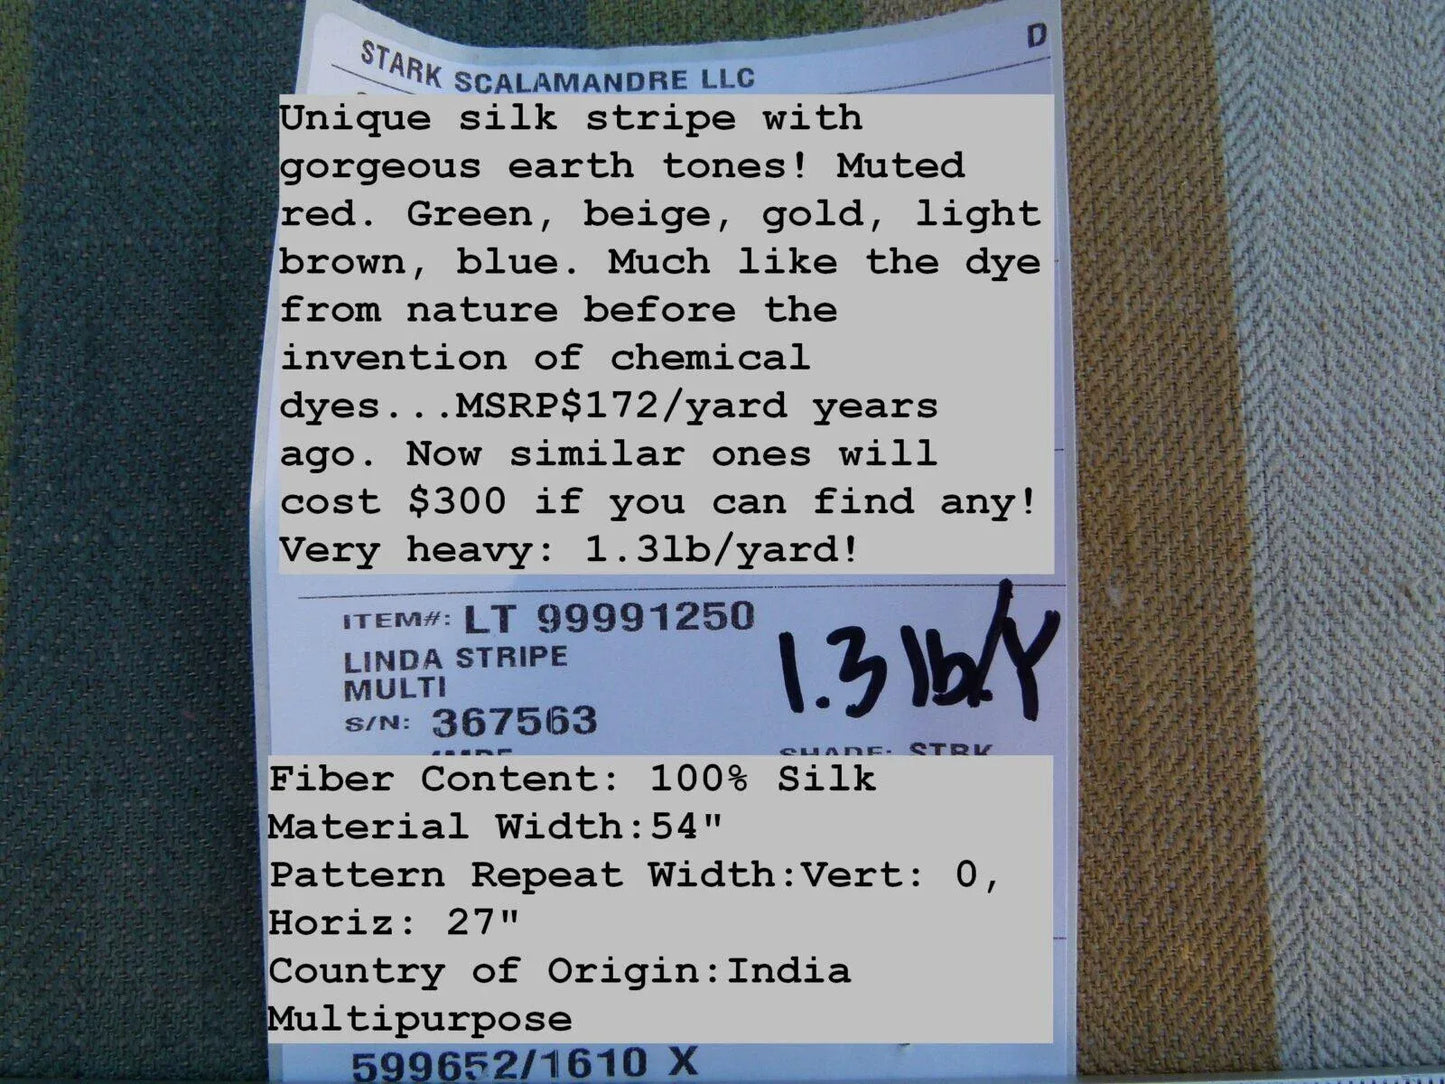 STARK SCALAMANDRE LLC
D
Unique silk stripe with
gorgeous earth tones! Muted
red. Green, beige, gold, light
brown, blue. Much like the dye
from nature before the
invention of chemical
dyes...MSRP$172/yard years
ago. Now similar ones will
cost $300 if you can find any!
Very heavy: 1.3lb/yard!
ITEM#: LT 99991250
LINDA STRIPE
MULTI
1.3 lb/Y
S/N: 367563
SHADE: STRK
Fiber Content: 100% Silk
Material Width:54"
Pattern Repeat Width:Vert: 0,
Horiz: 27"
Country of Origin:India
Multipurpose
599652/1610 X